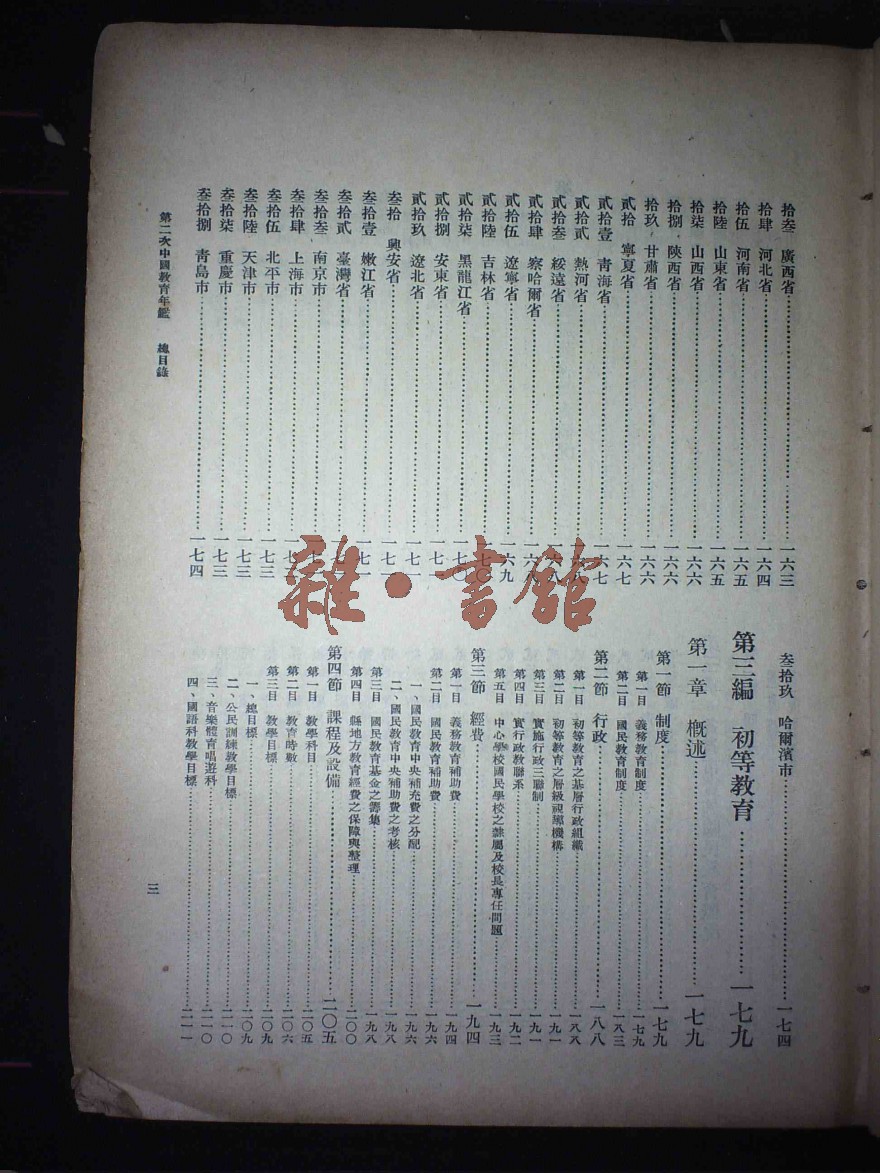 拾叁 廣西省……一六三
拾肆 河北省……一六四
拾伍 河南省……一六五
拾陸 山東省……一六五
拾柒 山西省……一六六
拾捌 陝西省……一六六
拾玖 甘肅省……一六六
貳拾 寧夏省……一六七
貳拾壹 青海省……一六七
貳拾貳 熱河省……一六八
貳拾叁 綏遠省……一六八
貳拾肆 察哈爾省……一六八
貳拾伍 遼寧省……一六九
貳拾陸 吉林省……一七〇
貳拾柒 黑龍江省……一七〇
貳拾捌 安東省……一七一
貳拾玖 遼北省……一七一
叁拾 興安省……一七一
叁拾壹 嫩江省……一七一
叁拾貳 臺灣省……
叁拾叁 南京市……
叁拾肆 上海市……
叁拾伍 北平市……一七三
叁拾陸 天津市……一七三
叁拾柒 重慶市……一七三
叁拾捌 青島市……一七四
叁拾玖 哈爾濱市……一七四
第三編 初等教育……一七九
第一章 概述……一七九
第一節 制度……一七九
第一目 義務教育制度……一七九
第二目 國民教育制度……一八三
第二節 行政……一八八
第一目 初等教育之基層行政組織……一八八
第二目 初等教育之層級視導機構……一九一
第三目 實施行政三聯制……一九一
第四目 實行政教聯系……一九二
第五目 中心學校國民學校之隸屬及校長專任問題……一九三
第三節 經費……一九四
第一目 義務教育補助費……一九四
第二目 國民教育補助費……一九六
一、國民教育中央補充費之分配……一九六
二、國民教育中央補助費之考核……一九八
第三目 國民教育基金之籌集……一九八
第四目 縣地方教育經費之保障與整理……二〇〇
第四節 課程及設備……二〇五
第一目 教學科目……二〇五
第二目 教育時數……二〇六
第三目 教學目標……二〇九
一、總目標……二〇九
二、公民訓練教學目標……二一〇
三、音樂體育唱遊科……二一〇
四、國語科教學目標……二一一
第二次中國教育年鑑 總目錄
三
雜·書館